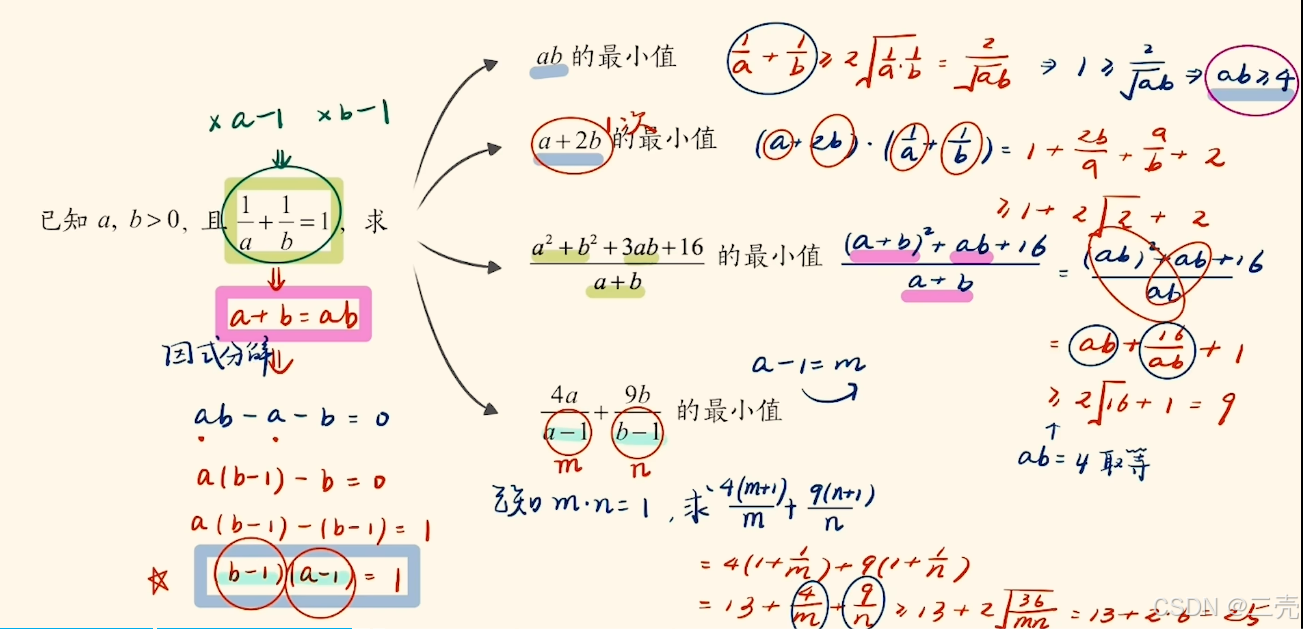 ×a-1 ×b-1
⇓
已知 a, b>0, 且 1/a + 1/b = 1, 求
⇓
a+b=ab
因式分解 ⇓
ab-a-b=0
a(b-1)-b=0
a(b-1)-(b-1)=1
☆ (b-1)(a-1)=1
ab 的最小值
1/a + 1/b ≥ 2√(1/a·1/b) = 2/√ab ⇒ 1 ≥ 2/√ab ⇒ ab≥4
1次
a+2b 的最小值
(a+2b)·(1/a+1/b) = 1 + 2b/a + a/b + 2
≥ 1 + 2√2 + 2
(a²+b²+3ab+16)/(a+b) 的最小值
((a+b)²+ab+16)/(a+b) = ((ab)²+ab+16)/ab
= ab + 16/ab + 1
≥ 2√16 + 1 = 9
↑
ab=4 取等
a-1=m
4a/(a-1) + 9b/(b-1) 的最小值
m n
已知 m·n=1, 求 4(m+1)/m + 9(n+1)/n
= 4(1+1/m) + 9(1+1/n)
= 13 + 4/m + 9/n ≥ 13 + 2√(36/mn) = 13+2·6=25
CSDN @三壳